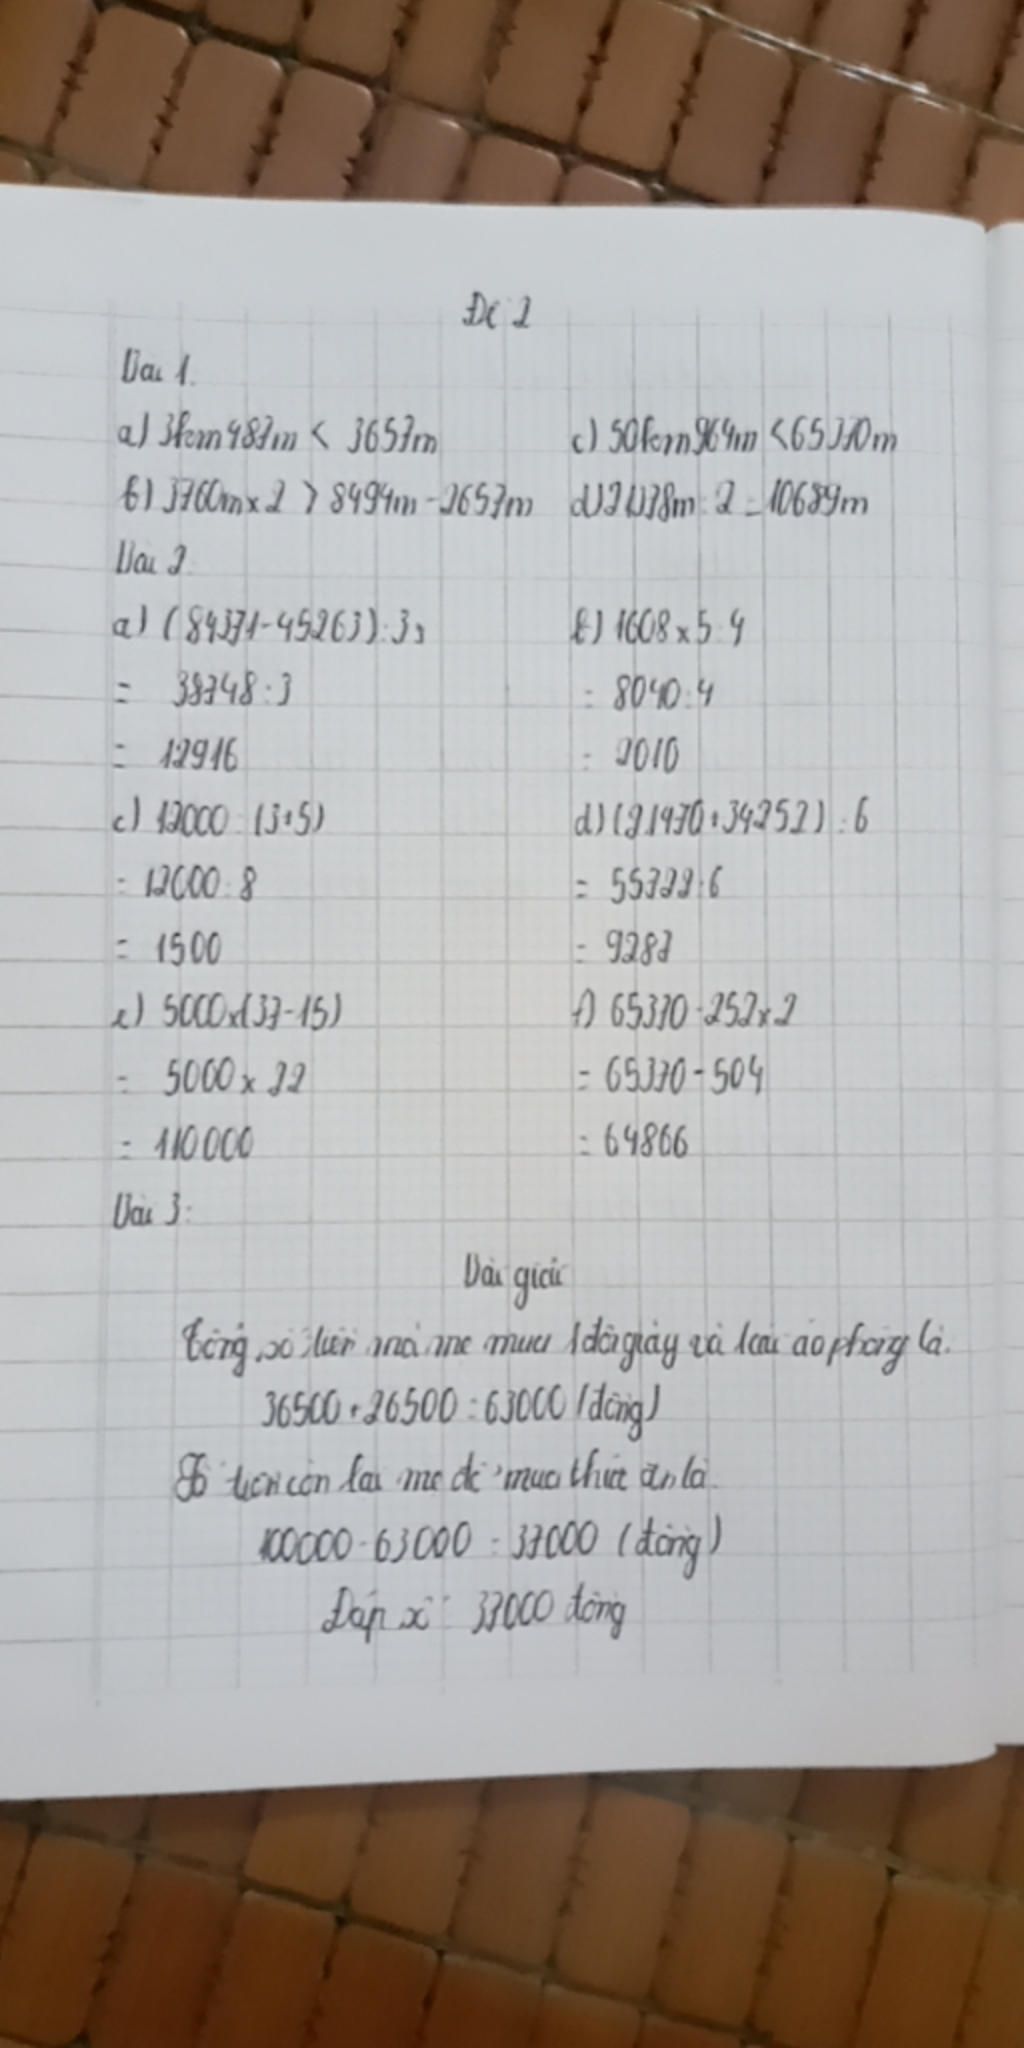 Đề 2
Bài 1.
a) 3km487m < 3657m c) 50km964m < 65370m
b) 3760m x 2 > 8494m - 2657m d) 21378m : 2 = 10689m
Bài 2
a) (84371 - 45263) : 3 b) 1608 x 5 : 4
= 38748 : 3 = 8040 : 4
= 12916 = 2010
c) 12000 : (3+5) d) (21470 + 34252) : 6
= 12000 : 8 = 55722 : 6
= 1500 = 9287
e) 5000 x (37 - 15) f) 65370 - 252 x 2
= 5000 x 22 = 65370 - 504
= 110000 = 64866
Bài 3:
Bài giải
Tổng số tiền mà mẹ mua 1 đôi giày và 1 cái áo phông là.
36500 + 26500 = 63000 (đồng)
Số tiền còn lại mẹ để mua thức ăn là.
100000 - 63000 = 37000 (đồng)
Đáp số: 37000 đồng